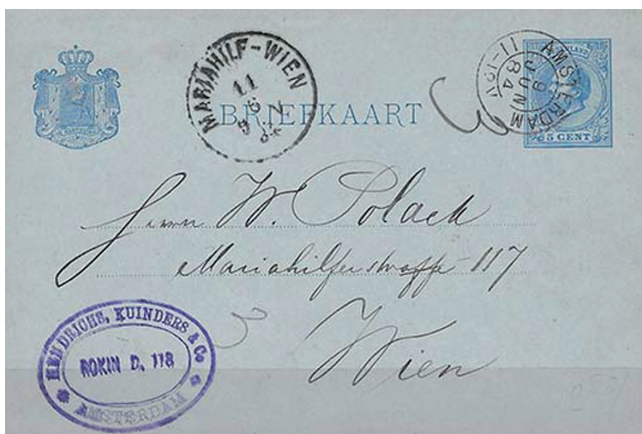 MARIAHILF-WIEN
11
6
84
BRIEFKAART
AMSTERDAM
9 JUN 84
11-12V
5 CENT
Herrn W. Polack
Mariahilferstrasse 117
Wien
HENDRICHS, KUINDERS & Co
ROKIN D. 118
AMSTERDAM
3